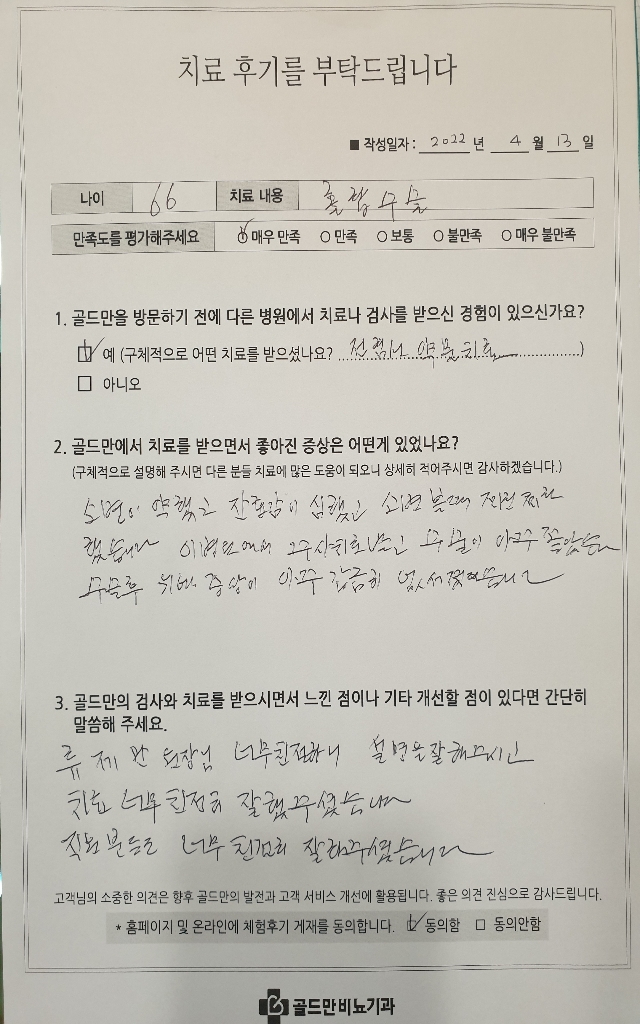 치료 후기를 부탁드립니다
■ 작성일자 : 2022 년 4 월 13 일
나이 66 치료 내용 홀렙수술
만족도를 평가해주세요 매우 만족 만족 보통 불만족 매우 불만족
1. 골드만을 방문하기 전에 다른 병원에서 치료나 검사를 받으신 경험이 있으신가요?
예 (구체적으로 어떤 치료를 받으셨나요? 전립선 약물치료)
아니오
2. 골드만에서 치료를 받으면서 좋아진 증상은 어떤게 있었나요?
(구체적으로 설명해 주시면 다른 분들 치료에 많은 도움이 되오니 상세히 적어주시면 감사하겠습니다.)
소변이 약했고 잔뇨감이 심했고 소변
했습니다 이병원에서 받고 수술이 아주
수술후 위에 증상이 아주 말끔히
3. 골드만의 검사와 치료를 받으시면서 느낀 점이나 기타 개선할 점이 있다면 간단히
말씀해 주세요.
류제만 원장님 너무친절하니 설명을잘해주시고
치료 너무친절히 잘했주셨습니다
직원분들도 너무 친절히 잘해주셨습니다
고객님의 소중한 의견은 향후 골드만의 발전과 고객 서비스 개선에 활용됩니다. 좋은 의견 진심으로 감사드립니다.
* 홈페이지 및 온라인에 체험후기 게재를 동의합니다. 동의함 동의안함
골드만비뇨기과